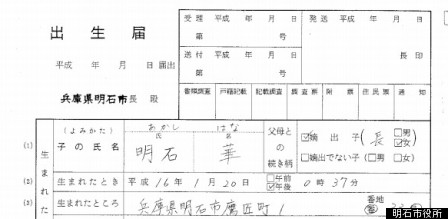 出生届
平成 年 月 日届出
兵庫県明石市長 殿
受理 平成 年 月 日
第 号
送付 平成 年 月 日
第 号
発送 平成 年 月 日
長印
書類調査 戸籍記載 記載調査 調査票 附票 住民票 通知
(1) 生まれた
(よみかた) あかし はな
子の氏名 氏 名
明石 華
父母との続き柄
☑嫡出子 (長 □男 ☑女)
□嫡出でない子 ( □男 □女)
(2) 生まれたとき 平成 16年 1月 20日 □午前 ☑午後 0時 37分
(3) 生まれたところ 兵庫県明石市鷹匠町1 番地
明石市役所